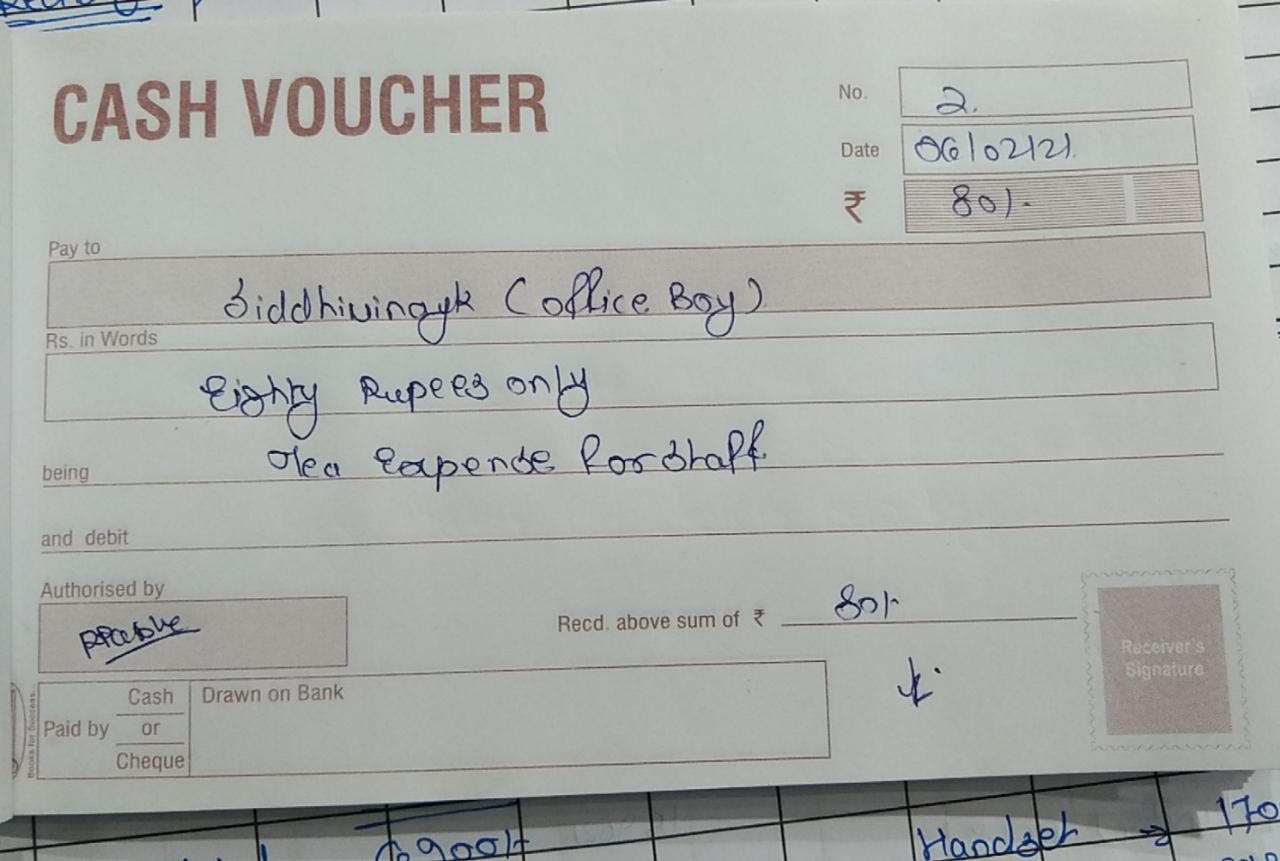 CASH VOUCHER
No. 2.
Date 06/02/21.
₹ 80/-
Pay to
Siddhivinayk (office Boy)
Rs. in Words
Eighty Rupees only
being Tea Expense for staff.
and debit
Authorised by
Recd. above sum of ₹ 80/-
Receiver's
Signature
Paid by Cash or Cheque
Drawn on Bank
Books for Success.
Handset → 170